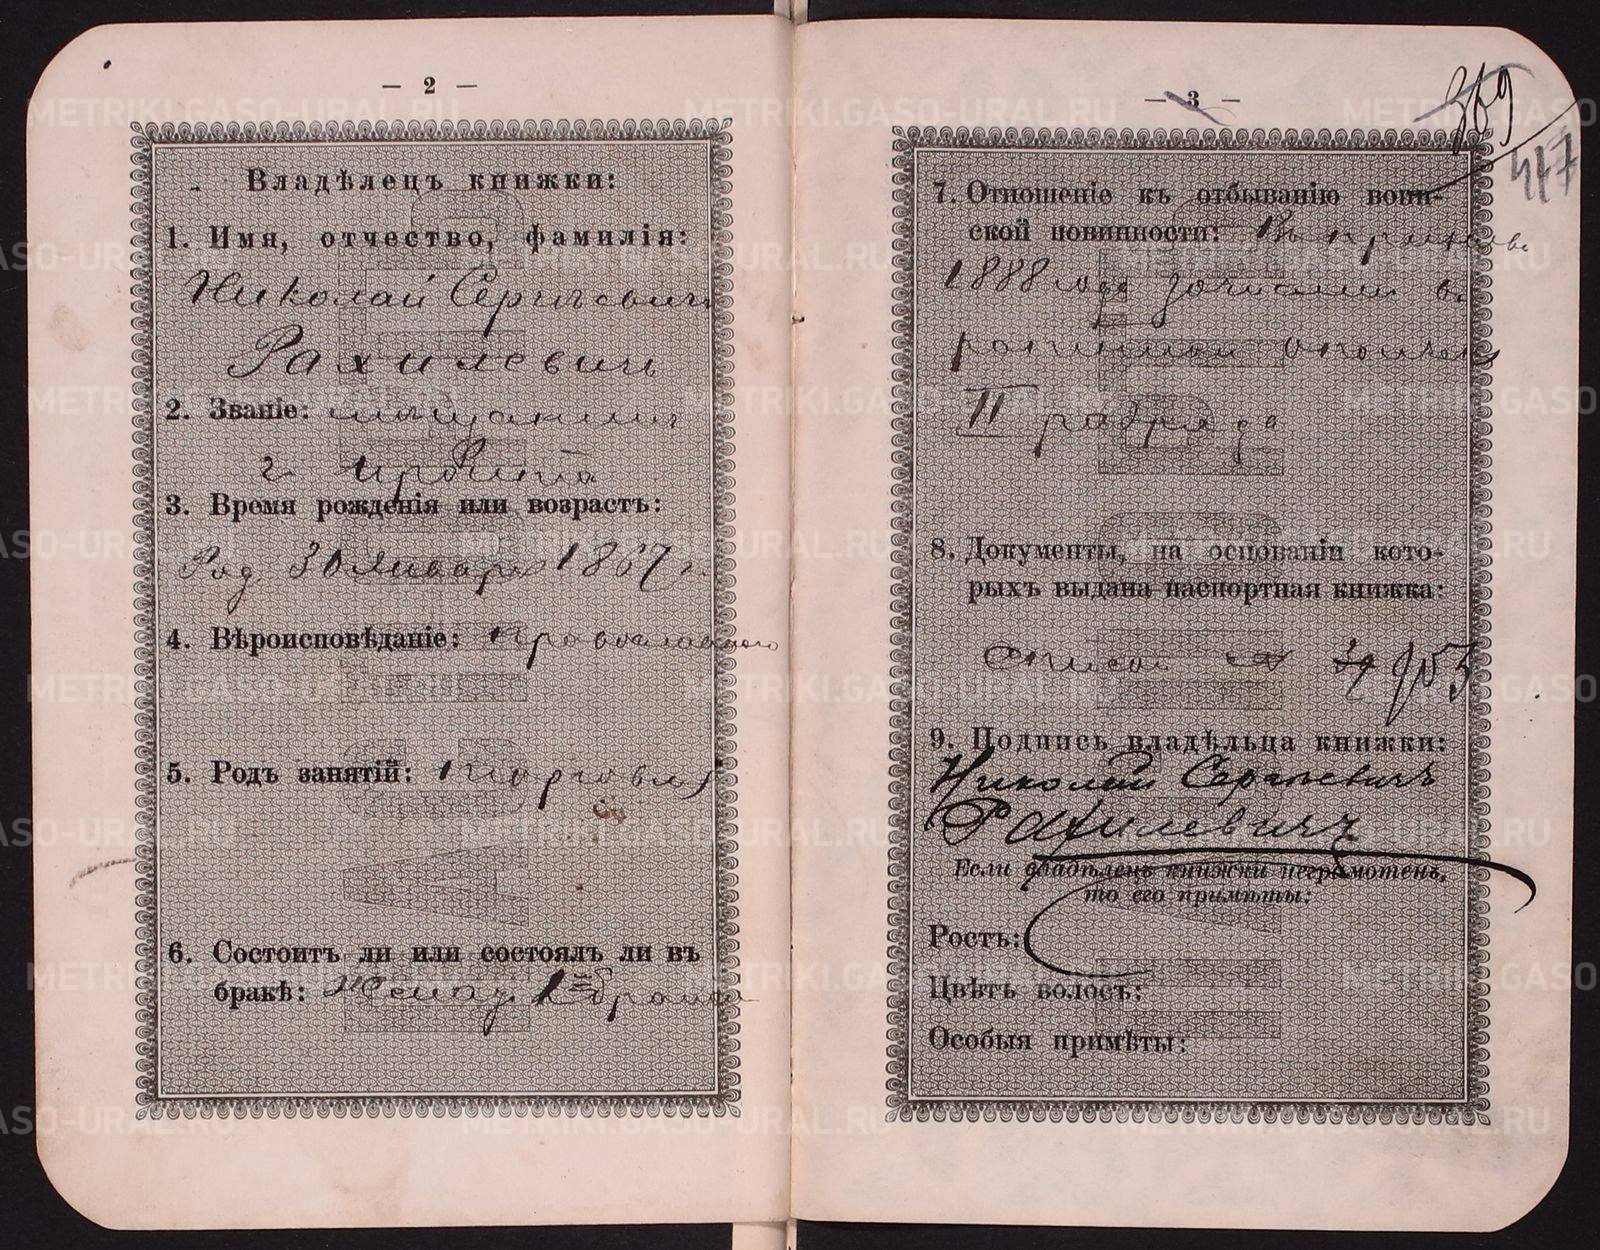 — 2 —
Владѣлецъ книжки:
1. Имя, отчество, фамилія:
Николай Сергѣевичъ
Рахилевичъ
2. Званіе: мѣщанинъ
г. Ирбита
3. Время рожденія или возрастъ:
Род. 30 Января 1867 г.
4. Вѣроисповѣданіе: Православнаго
5. Родъ занятій: Торговля
6. Состоитъ ли или состоялъ ли въ
бракѣ: Женат
— 3 —
369
417
7. Отношеніе къ отбыванію воин-
ской повинности: Въ призывъ
1888 года зачисленъ въ
ратники ополченія
II разряда
8. Документы, на основаніи кото-
рыхъ выдана паспортная книжка:
9. Подпись владѣльца книжки:
Николай Сергѣевичъ
Рахилевичъ
Если владѣлецъ книжки неграмотенъ,
то его примѣты:
Ростъ:
Цвѣтъ волосъ:
Особыя примѣты:
METRIKI.GASO-URAL.RU